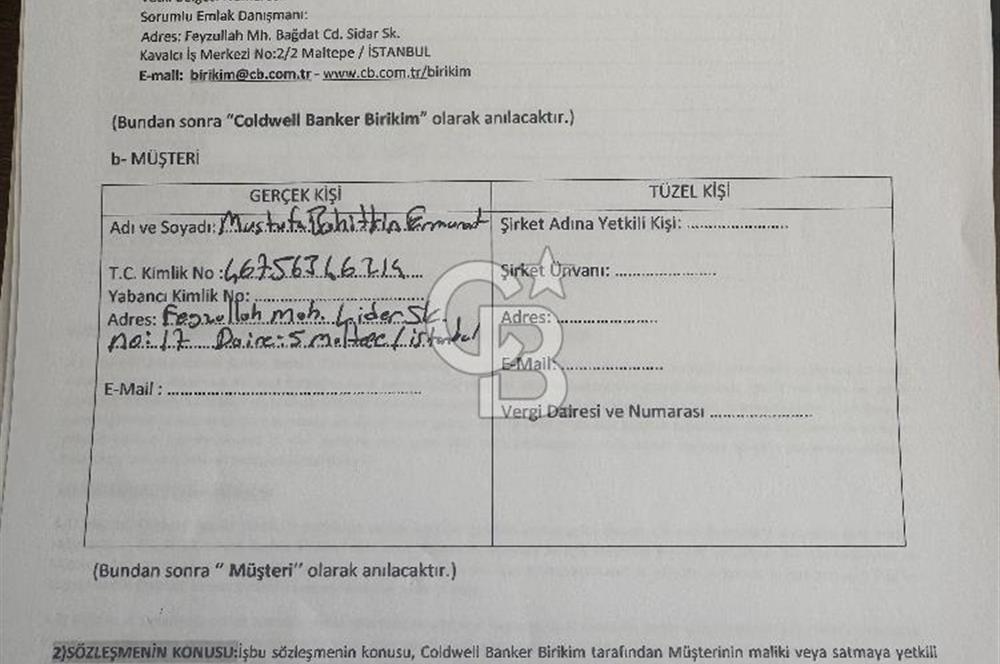 Sorumlu Emlak Danışmanı:
Adres: Feyzullah Mh. Bağdat Cd. Sidar Sk.
Kavalcı İş Merkezi No:2/2 Maltepe / İSTANBUL
E-mail: birikim@cb.com.tr - www.cb.com.tr/birikim
(Bundan sonra "Coldwell Banker Birikim" olarak anılacaktır.)
b- MÜŞTERİ
GERÇEK KİŞİ
Adı ve Soyadı: Mustafa
T.C. Kimlik No :
Yabancı Kimlik No: ..............................
Adres: Feyzullah Mah. Lider Sk.
no: 17 Daire: 5 maltepe / istanbul
E-Mail : ..............................
TÜZEL KİŞİ
Şirket Adına Yetkili Kişi: ....................
Şirket Ünvanı: ....................
Adres: ....................
E-Mail: ....................
Vergi Dairesi ve Numarası ....................
CB
(Bundan sonra " Müşteri" olarak anılacaktır.)
2)SÖZLEŞMENİN KONUSU:İşbu sözleşmenin konusu, Coldwell Banker Birikim tarafından Müşterinin maliki veya satmaya yetkili